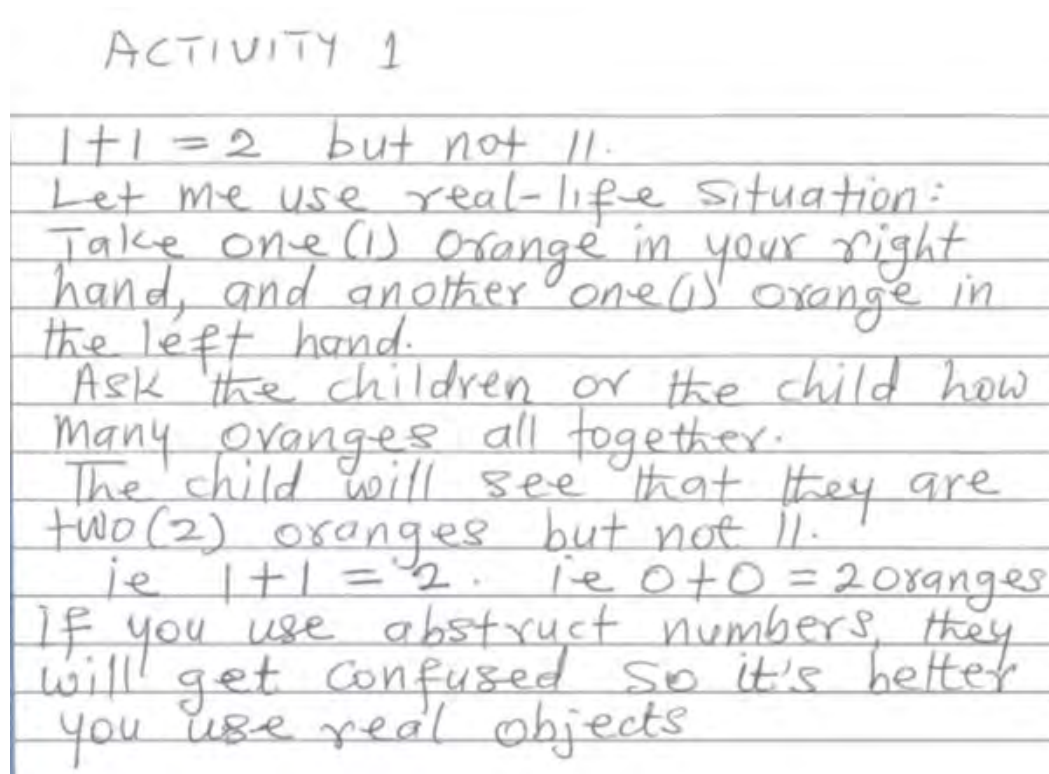 ACTIVITY 1
1+1 = 2 but not 11.
Let me use real-life situation:
Take one (1) orange in your right
hand, and another one (1) orange in
the left hand.
Ask the children or the child how
many oranges all together.
The child will see that they are
two (2) oranges but not 11.
ie 1+1 = 2. ie 0+0 = 2 oranges
If you use abstruct numbers, they
will get confused so it's better
you use real objects